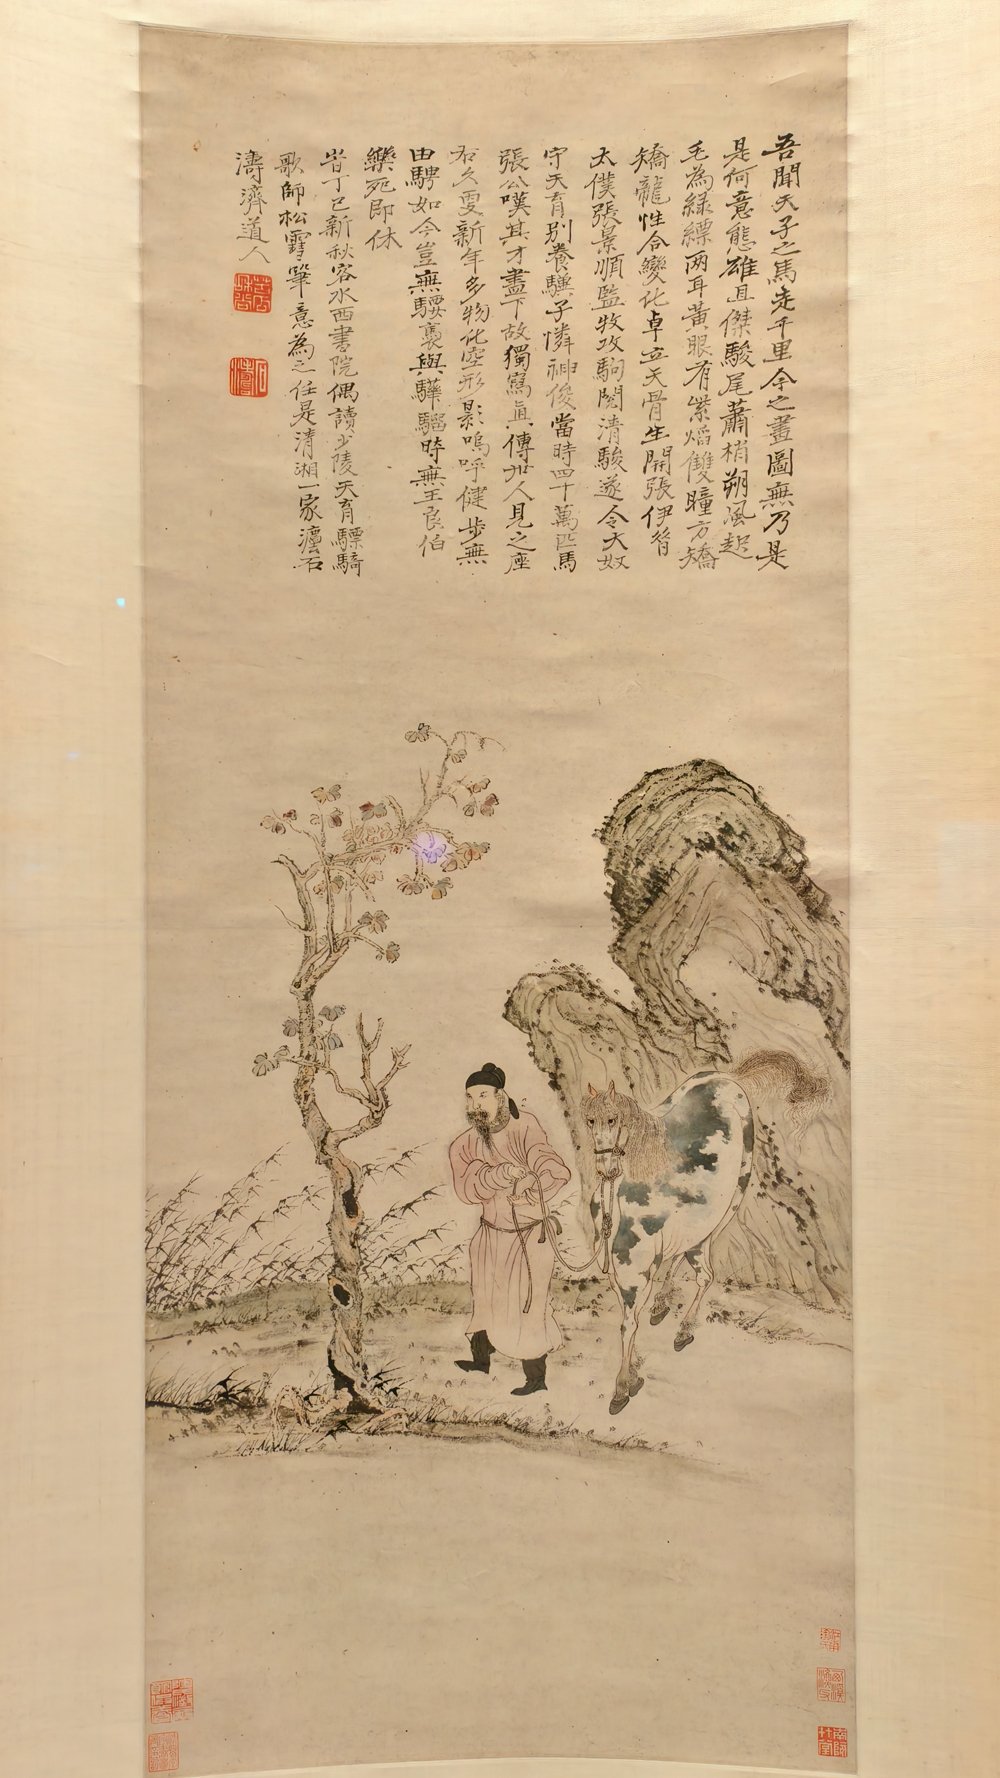 吾聞天子之馬走千里今之畫圖無乃是
是何意態雄且傑駿尾蕭梢朔風起
毛為緑縹兩耳黃眼有紫焰雙瞳方矯
矯龍性合變化卓立天骨生開張伊昔
太僕張景順監牧攻駒閱清駿遂令大奴
守天育別養驥子憐神俊當時四十萬匹馬
張公嘆其才盡下故獨寫真傳世人見之座
右久更新年多物化空形影嗚呼健步無
由騁如今豈無騕褭與驊騮時無王良伯
樂死即休
昔丁巳新秋客水西書院偶讀少陵天育驃騎
歌師松雪筆意為之任是清湘一家濤石
濤濟道人